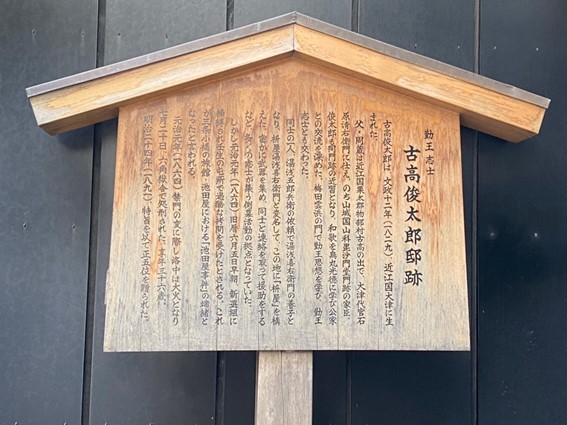 勤王志士
古高俊太郎邸跡
古高俊太郎は、文政十二年(一八二九)近江国大津に生
まれた。
父・周蔵は近江国栗太郡物部村古高の出で、大津代官石
原清右衛門に仕え、のち山城国山科毘沙門堂門跡の家臣。
俊太郎も同門跡の近習となり、和歌を烏丸光徳に学び公家
との交流を深めた。梅田雲浜の門で勤王思想を学び、勤王
志士とも交わった。
同士の一人、湯浅五郎兵衛の依頼で湯浅喜右衛門の養子と
なり、枡屋湯浅喜右衛門と変名して、この地に「枡屋」を構
えた。密かに武器を集め、同士と連絡を取って援助をする
など、多くの志士が集う倒幕活動の拠点となっていた。
しかし元治元年(一八六四)旧暦六月五日早朝、新選組に
捕縛され壬生の屯所で過酷な拷問を受けたとされる。これ
が三条小橋の旅館・池田屋における「池田屋事件」の端緒と
なったと言われる。
元治元年(一八六四)禁門の変に際し洛中は大火となり
七月二十日、六角獄舎で処刑された。享年三十六歳。
明治二十四年(一八九一)特旨を以て正五位を贈られた。